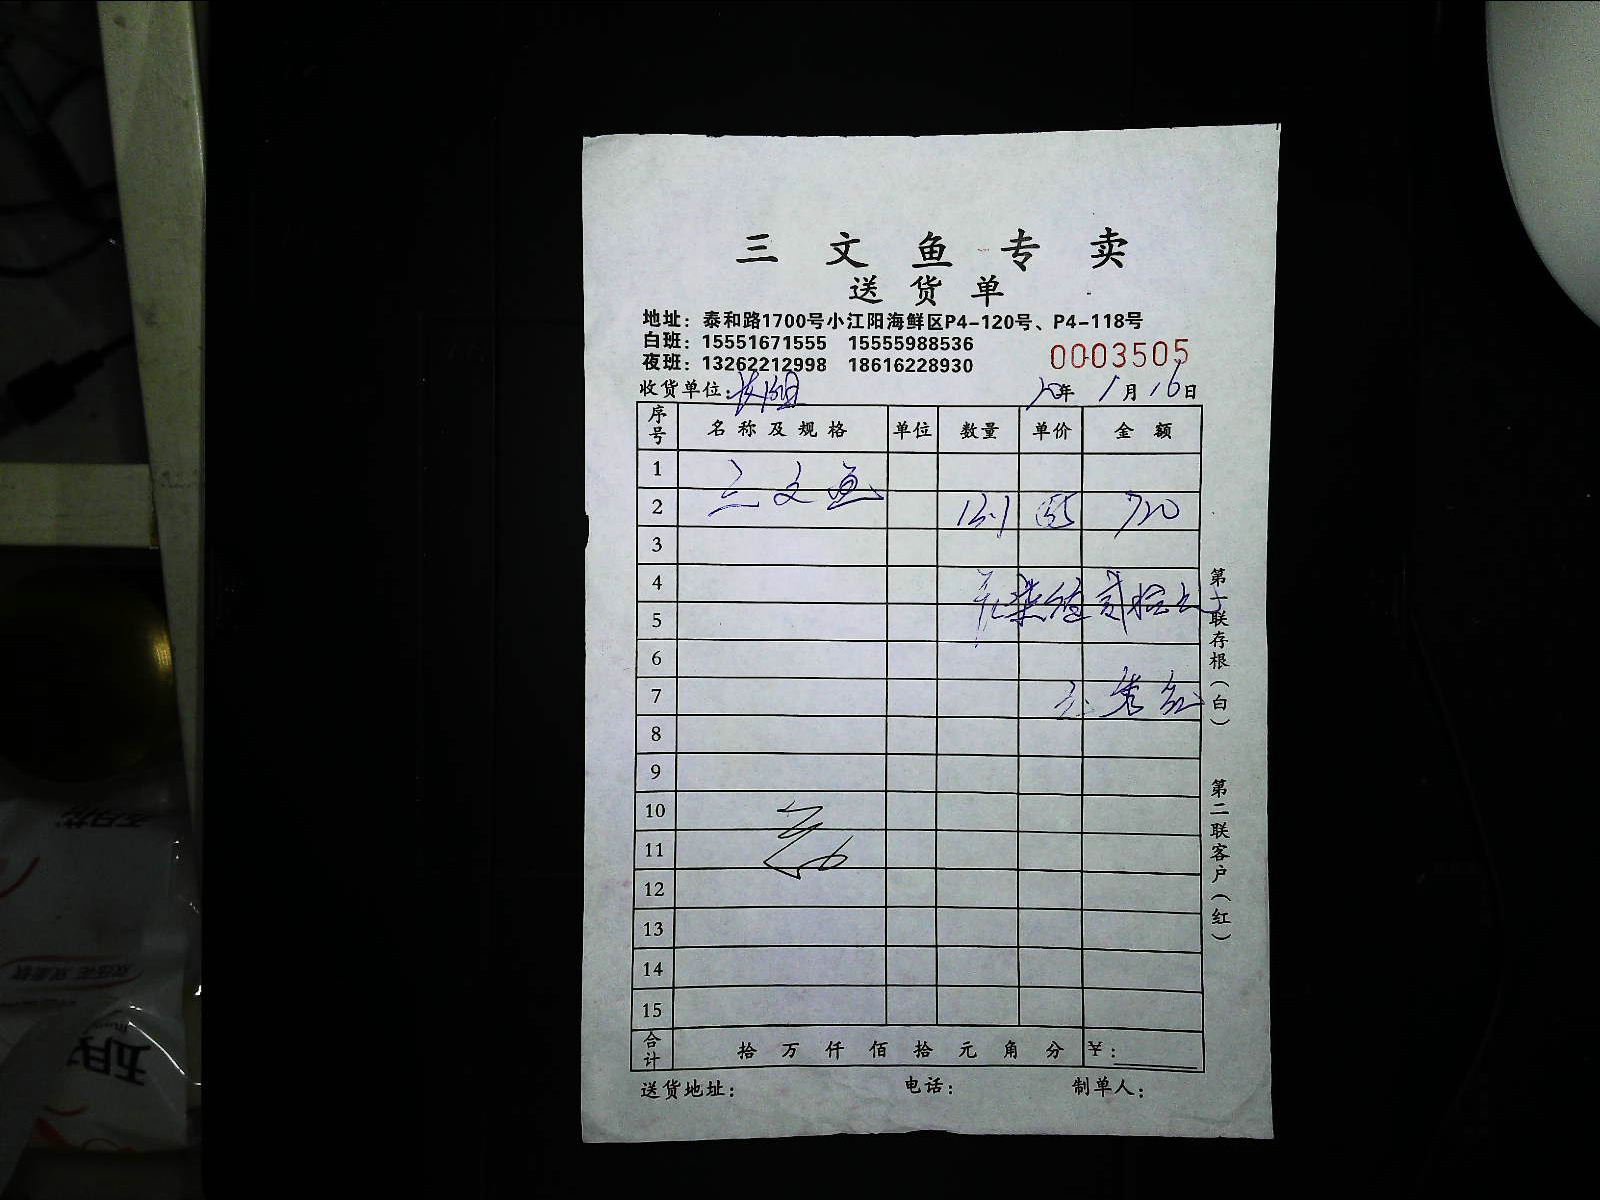 三文鱼专卖
送货单
地址：泰和路1700号小江阳海鲜区P4-120号、P4-118号
白班：15551671555 15555988536
夜班：13262212998 18616228930
0003505
收货单位：
20年1月16日
序号 名称及规格 单位 数量 单价 金额
1 三文鱼
2 13.1 55 720
3
4 柒佰贰拾元
5
6
7
8
9
10
11
12
13
14
15
合计 拾万仟佰拾元角分 ￥：
送货地址： 电话： 制单人：
第一联存根（白）
第二联客户（红）
五月花
五月花